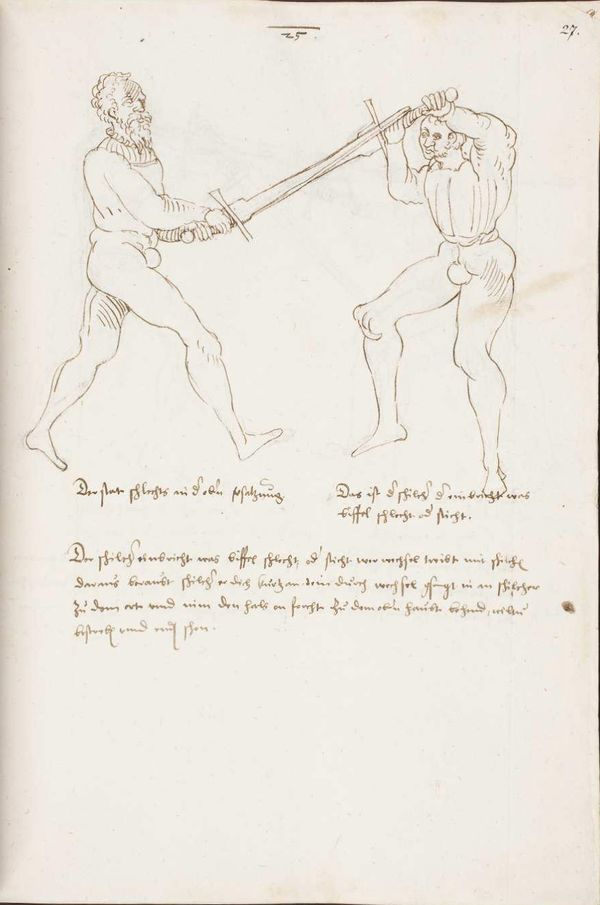 25
27.
Der stat schlechts in d' obn̄ psatzung
Das ist d' schilch' d' einbricht was
büffel schlecht od' sticht.
Der schilch' einbricht was büffel schlecht, od' sticht wer wechsel treibt mit schilch'
daraus beraubt schilch' er dich kurtz an dein durch wechsel gsigt in in schilcher
zu dem ort und nim den hals on forcht zu dem obn̄ haubt behend,
und schon.